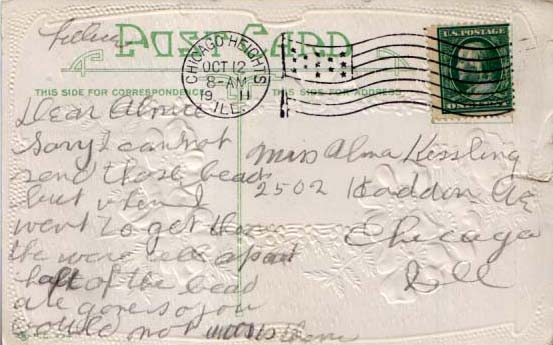 POST CARD
CHICAGO HEIGHTS
OCT 12
8-AM
1911
ILL.
U.S. POSTAGE
THIS SIDE FOR CORRESPONDENCE
THIS SIDE FOR ADDRESS
Dear
Sorry I can not
send those beads
but when I
went to get them
the were all apart
half of the bead
are gone so you
would not
Miss Alma Kessling
2502 Haddon Ave
Chicago
Ill